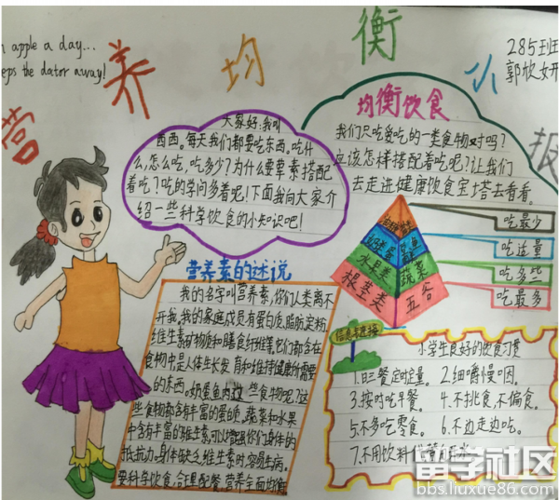 n apple a day...
eps the dator away!
营养均衡小报
285班
郭
大家好,我叫
西西,每天我们都要吃东西,吃什
么,怎么吃,吃多少?为什么要荤素搭配
着吃?吃的学问多着呢!下面我向大家介
绍一些科学饮食的小知识吧!
均衡饮食
我们只吃爱吃的一类食物对吗?
应该怎样搭配着吃呢?让我们
去走进健康饮食宝塔去看看。
吃最少
吃适量
吃多些
吃最多
水果类
蔬菜
根茎类
五谷
营养素的迷说
我的名字叫营养素,你们人类离不
开我,我的家庭成员有蛋白质,脂肪,淀粉,
维生素,矿物质和膳食纤维等。它们都含在
食物中,是人体生长发育和维持健康所需要
的东西。奶蛋鱼肉这一些食物呢?这
些食物都含有丰富的蛋白质,蔬菜和水果
中含有丰富的维生素,可以增强你们身体的
抵抗力。身体缺乏维生素时容易生病。
要科学饮食,合理配餐,营养全面均衡
小学生良好的饮食习惯
1.日三餐定时定量。 2.细嚼慢咽。
3.按时吃早餐。 4.不挑食,不偏食。
5.不多吃零食。 6.不边走边吃。
7.不用饮料代替
留学社区
bbs.liuxue86.com